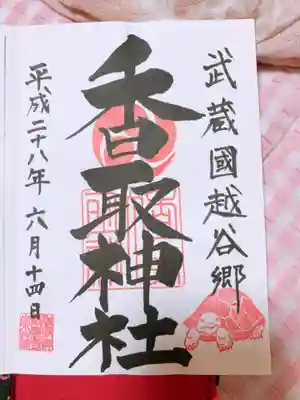 武蔵國越谷郷
香取神社
平成二十八年 六月十四日